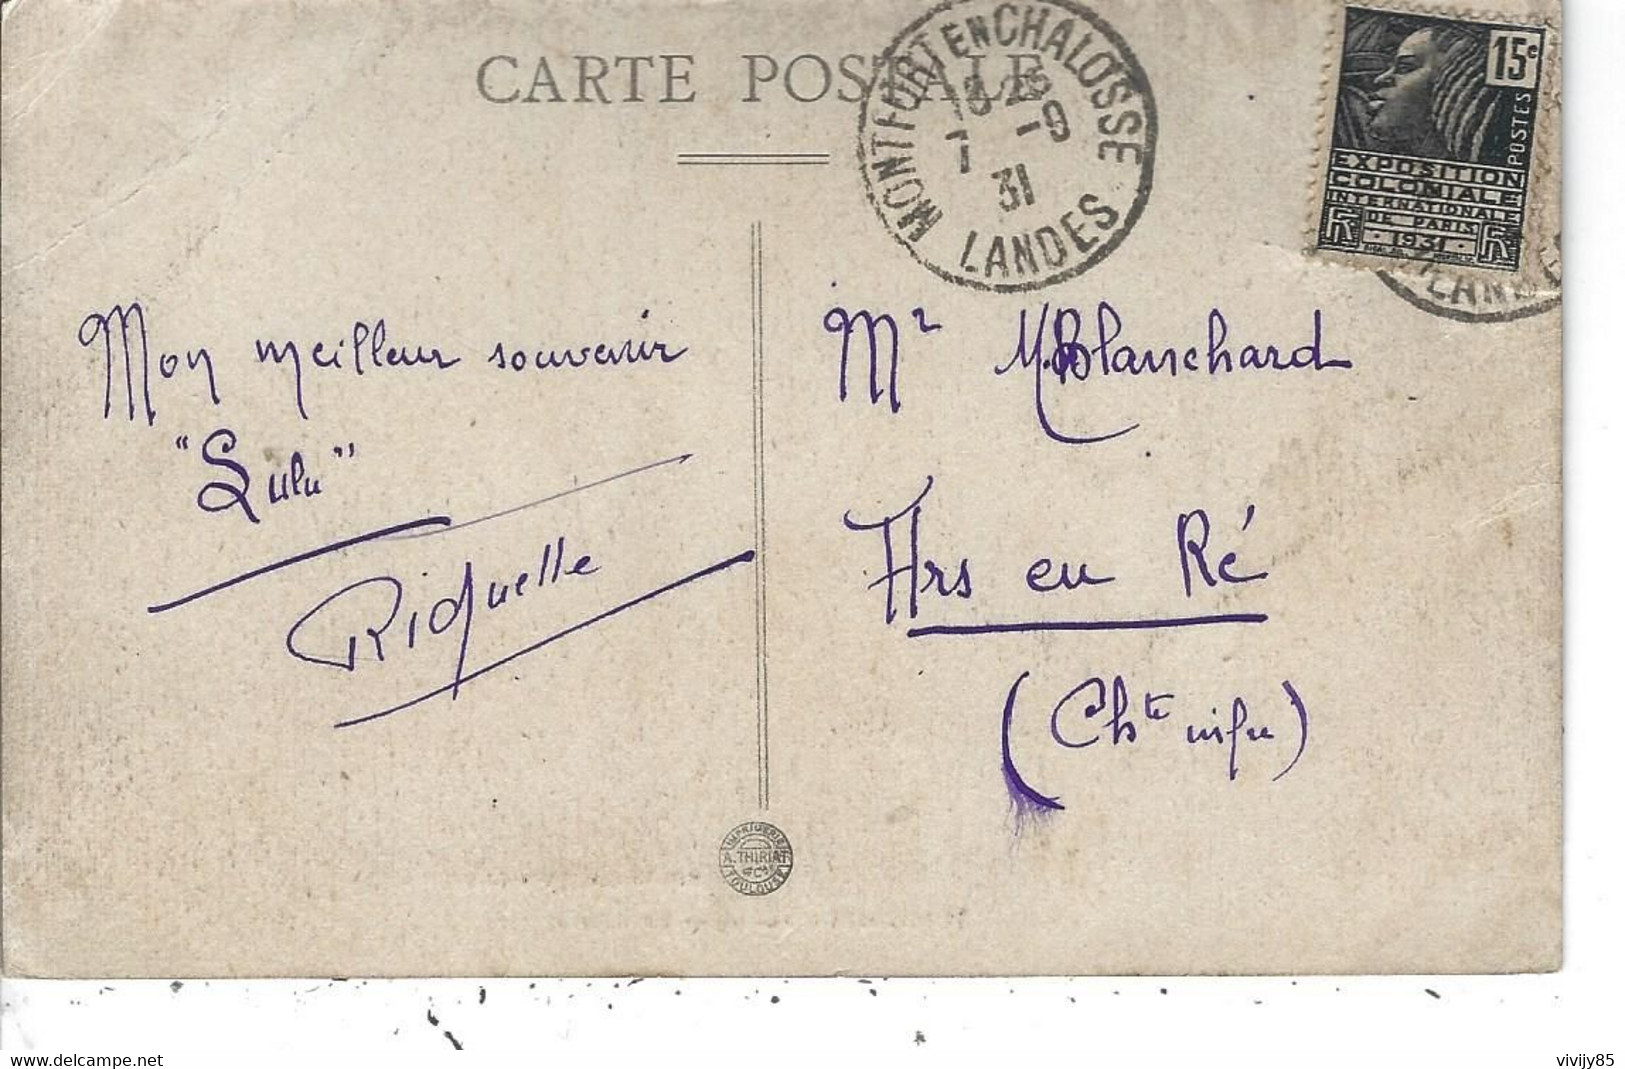 CARTE POSTALE
MONTFORT EN CHALOSSE
31
LANDES
15c
POSTES
EXPOSITION
COLONIALE
INTERNATIONALE
DE PARIS
1931
LANDES
Mon meilleur souvenir
"Lulu"
Riquelle
Mr M. Blanchard
Ars en Ré
(Chte infre)
IMPRIMERIE
A. THIRIAT
& Cie
TOULOUSE
www.delcampe.net
vivijy85